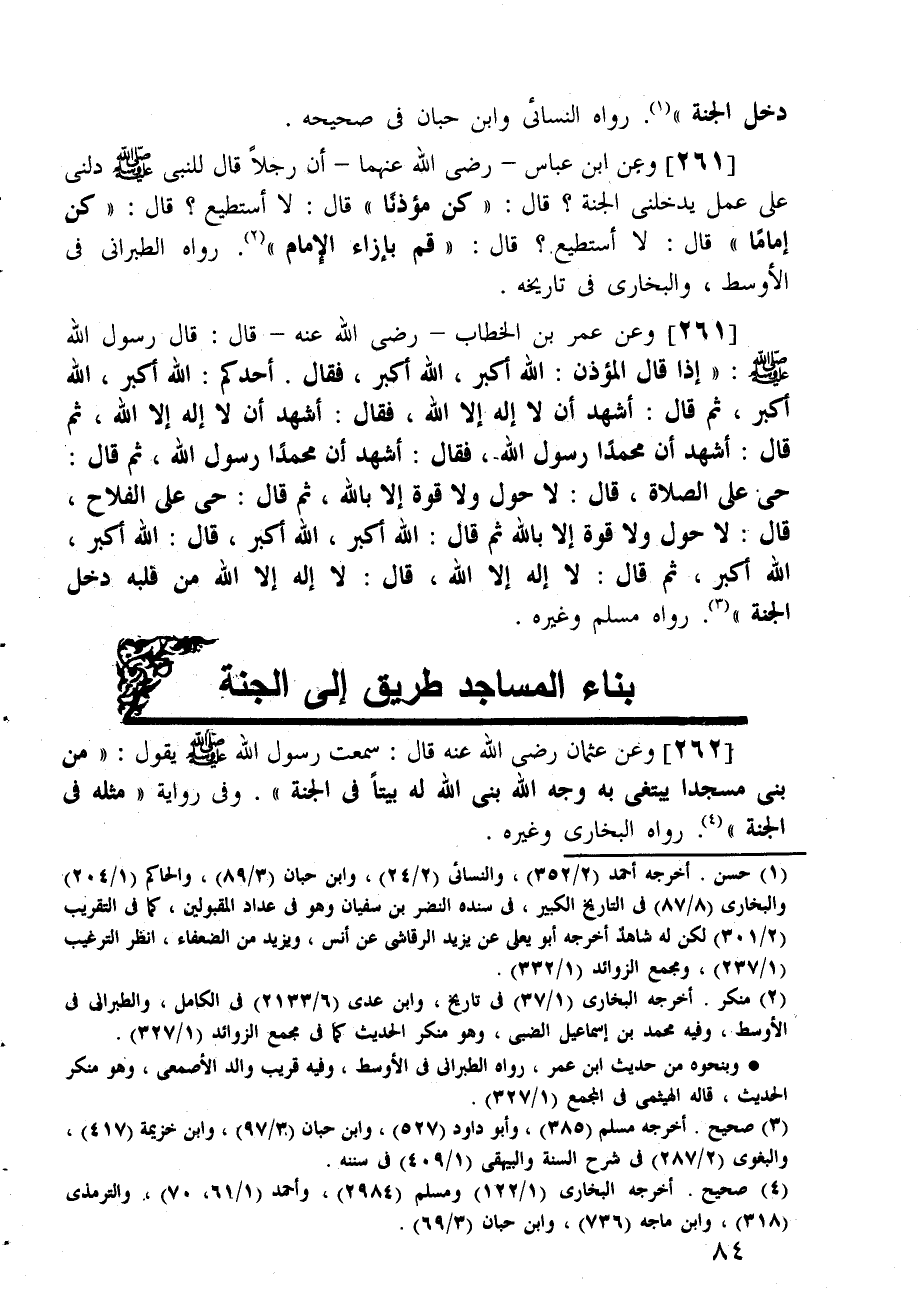 دخل الجنة »(١). رواه النسائى وابن حبان فى صحيحه .
[٢٦١] وعن ابن عباس – رضى الله عنهما – أن رجلاً قال للنبى ﷺ دلنى
على عمل يدخلنى الجنة ؟ قال : « كن مؤذنًا » قال : لا أستطيع ؟ قال : « كن
إمامًا » قال : لا أستطيع ؟ قال : « قم بإزاء الإمام »(٢). رواه الطبرانى فى
الأوسط ، والبخارى فى تاريخه .
[٢٦١] وعن عمر بن الخطاب – رضى الله عنه – قال : قال رسول الله
ﷺ : « إذا قال المؤذن : الله أكبر ، الله أكبر ، فقال . أحدكم : الله أكبر ، الله
أكبر ، ثم قال : أشهد أن لا إله إلا الله ، فقال : أشهد أن لا إله إلا الله ، ثم
قال : أشهد أن محمدًا رسول الله ، فقال : أشهد أن محمدًا رسول الله ، ثم قال :
حى على الصلاة ، قال : لا حول ولا قوة إلا بالله ، ثم قال : حى على الفلاح ،
قال : لا حول ولا قوة إلا بالله ثم قال : الله أكبر ، الله أكبر ، قال : الله أكبر ،
الله أكبر ، ثم قال : لا إله إلا الله ، قال : لا إله إلا الله من قلبه دخل
الجنة »(٣). رواه مسلم وغيره .
بناء المساجد طريق إلى الجنة
[٢٦٢] وعن عثمان رضى الله عنه قال : سمعت رسول الله ﷺ يقول : « من
بنى مسجدا يبتغى به وجه الله بنى الله له بيتاً فى الجنة » . وفى رواية « مثله فى
الجنة »(٤). رواه البخارى وغيره .
(١) حسن . أخرجه أحمد (٣٥٢/٢) ، والنسائى (٢٤/٢) ، وابن حبان (٨٩/٣) ، والحاكم (٢٠٤/١)
والبخارى (٨٧/٨) فى التاريخ الكبير ، فى سنده النضر بن سفيان وهو فى عداد المقبولين ، كما فى التقريب
(٣٠١/٢) لكن له شاهدٌ أخرجه أبو يعلى عن يزيد الرقاشى عن أنس ، ويزيد من الضعفاء ، انظر الترغيب
(٢٣٧/١) ، ومجمع الزوائد (٣٣٢/١) .
(٢) منكر . أخرجه البخارى (٣٧/١) فى تاريخ ، وابن عدى (٢١٣٣/٦) فى الكامل ، والطبرانى فى
الأوسط ، وفيه محمد بن إسماعيل الضبى ، وهو منكر الحديث كما فى مجمع الزوائد (٣٢٧/١) .
● وبنحوه من حديث ابن عمر ، رواه الطبرانى فى الأوسط ، وفيه قريب والد الأصمعى ، وهو منكر
الحديث ، قاله الهيثمى فى المجمع (٣٢٧/١) .
(٣) صحيح . أخرجه مسلم (٣٨٥) ، وأبو داود (٥٢٧) ، وابن حبان (٩٧/٣) ، وابن خزيمة (٤١٧) ،
والبغوى (٢٨٧/٢) فى شرح السنة والبيهقى (٤٠٩/١) فى سننه .
(٤) صحيح . أخرجه البخارى (١٢٢/١) ومسلم (٢٩٨٤) ، وأحمد (٦١/١، ٧٠) ، والترمذى
(٣١٨) ، وابن ماجه (٧٣٦) ، وابن حبان (٦٩/٣) .
٨٤